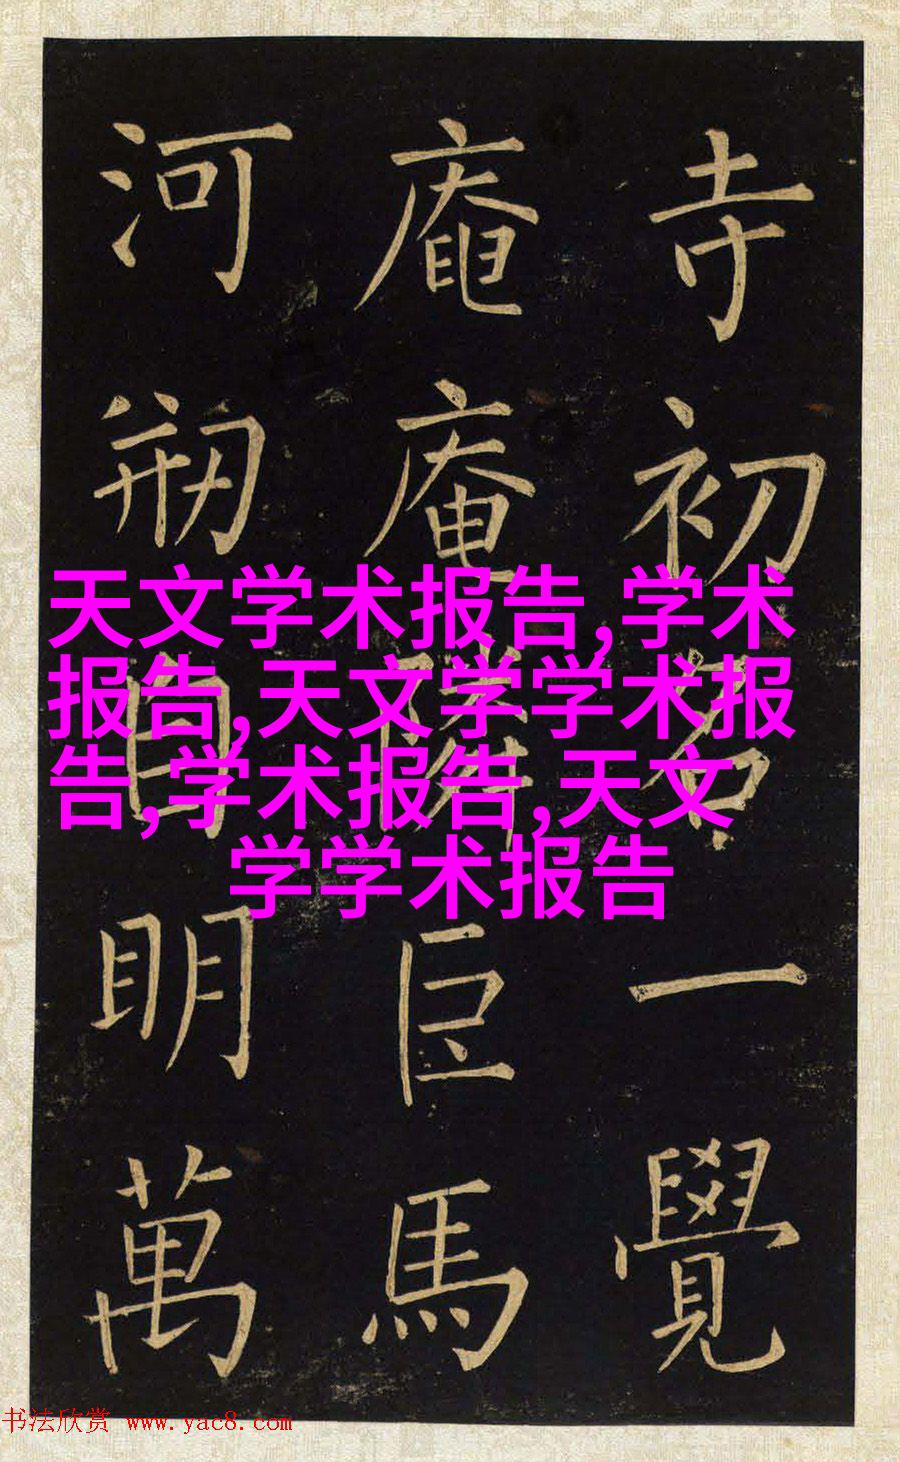 寺初名一覺
庵庵隣巨馬
河刱自明萬
天文学术报告,学术
报告,天文学学术报
告,学术报告,天文
学学术报告
书法欣赏 www.yac8.com